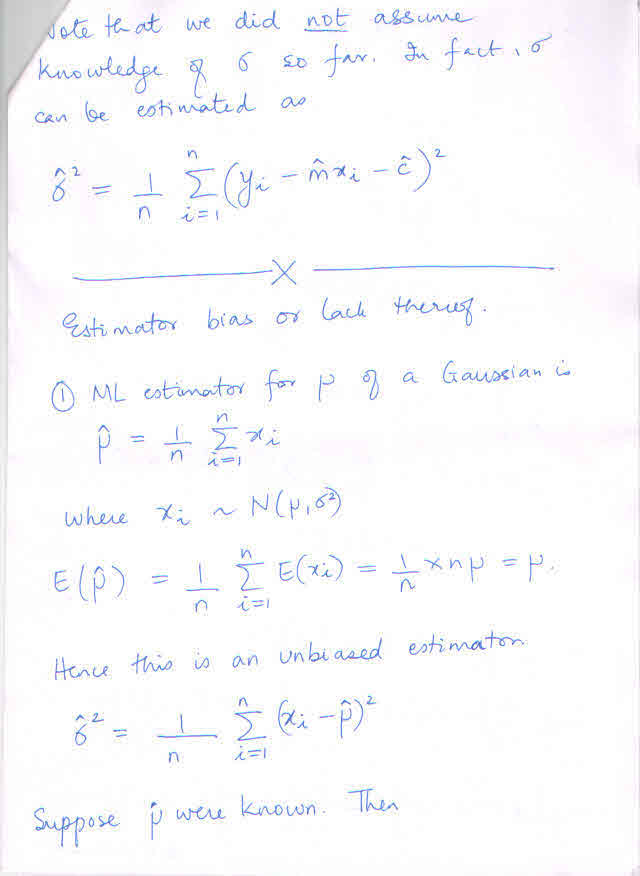 Note that we did not assume
knowledge of σ so far. In fact, σ
can be estimated as
σ̂² = 1/n Σ_{i=1}^{n} (yᵢ − m̂xᵢ − ĉ)²
X
Estimator bias or lack thereof.
① ML estimator for μ of a Gaussian is
μ̂ = 1/n Σ_{i=1}^{n} xᵢ
where xᵢ ~ N(μ, σ²)
E(μ̂) = 1/n Σ_{i=1}^{n} E(xᵢ) = 1/n × nμ = μ.
Hence this is an unbiased estimator.
σ̂² = 1/n Σ_{i=1}^{n} (xᵢ − μ̂)²
Suppose μ were known. Then